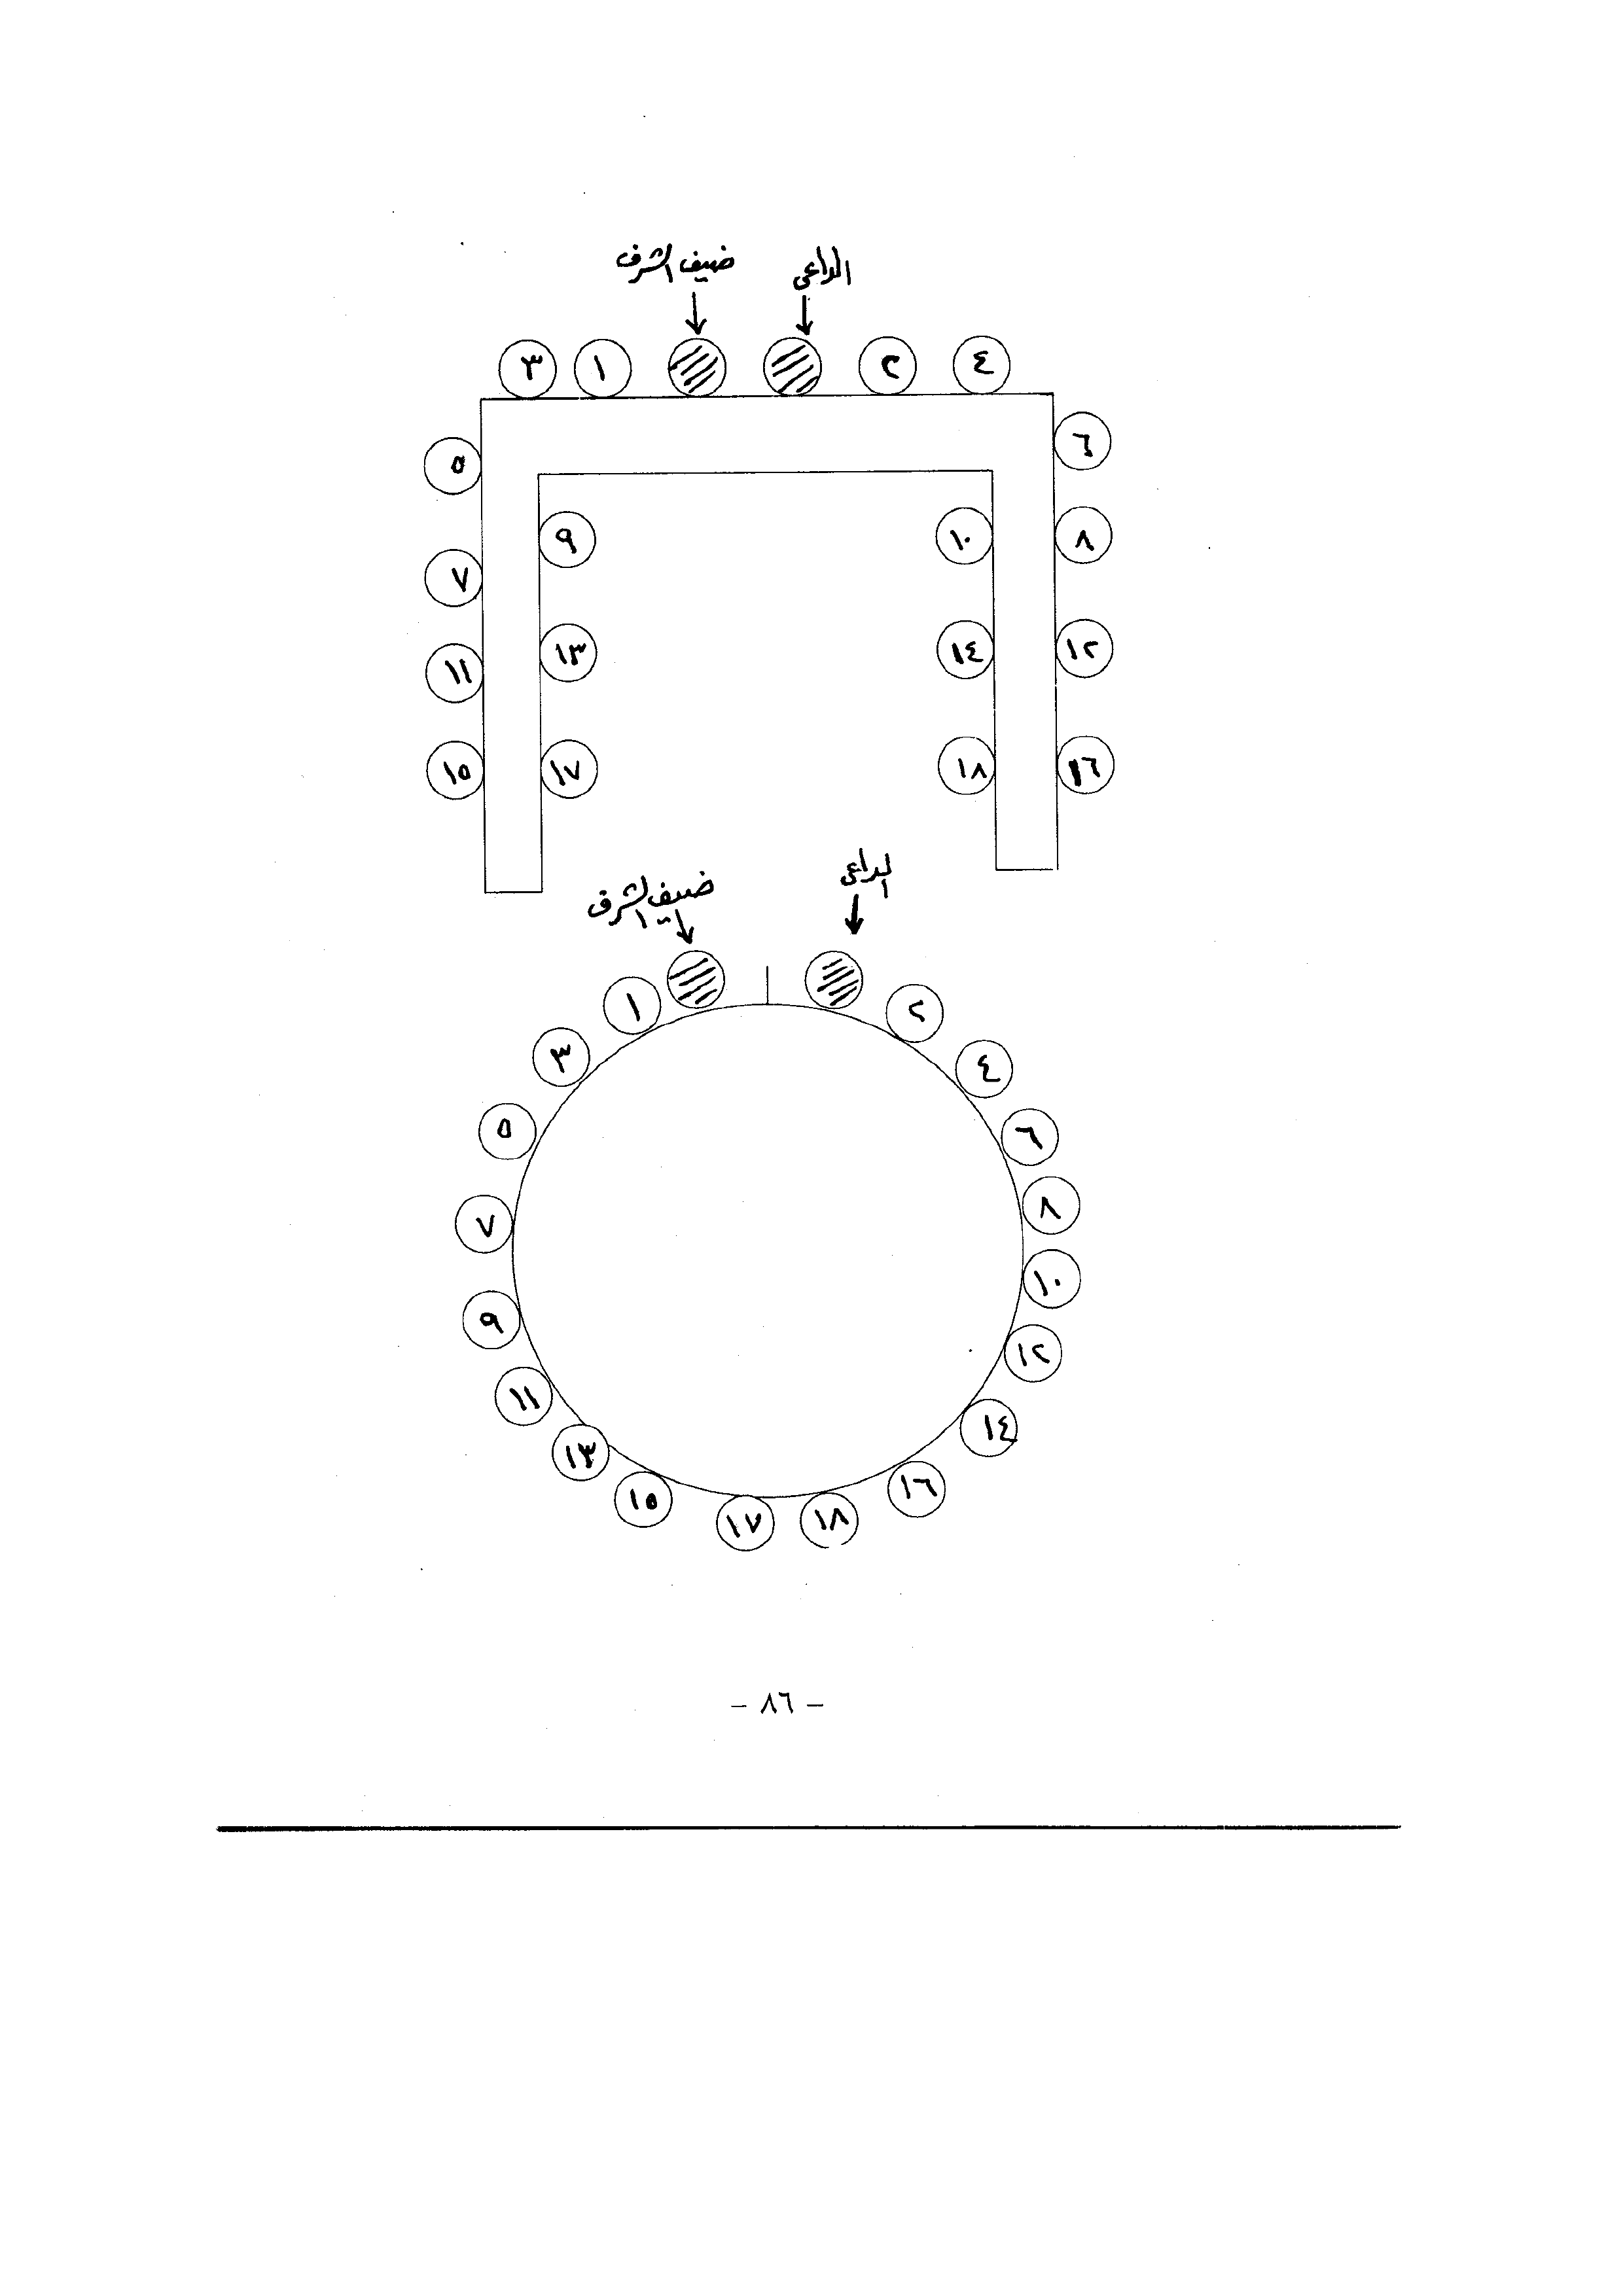 ضيف الشرف الداعى
٣ ١ ٢ ٤
٥ ٦
٩ ١٠ ٨
٧
١٣ ١٤ ١٢
١١
١٥ ١٧ ١٨ ١٦
ضيف الشرف الداعى
١ ٢
٣ ٤
٥ ٦
٧ ٨
٩ ١٠
١١ ١٢
١٣ ١٤
١٥ ١٦
١٧ ١٨
- ٨٦ -